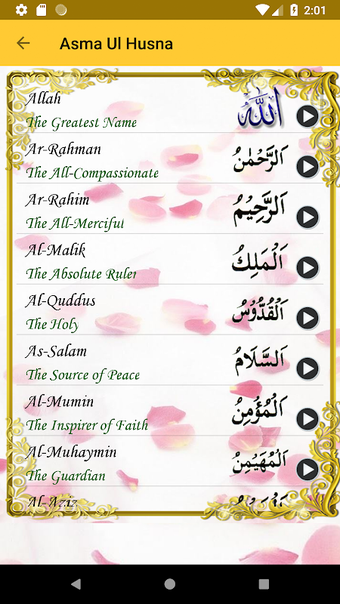 2:01
Asma Ul Husna
Allah
The Greatest Name
الله
Ar-Rahman
The All-Compassionate
اَلرَّحْمٰنُ
Ar-Rahim
The All-Merciful
اَلرَّحِيْمُ
Al-Malik
The Absolute Ruler
اَلْمَلِكُ
Al-Quddus
The Holy
اَلْقُدُّوْسُ
As-Salam
The Source of Peace
اَلسَّلَامُ
Al-Mumin
The Inspirer of Faith
اَلْمُؤْمِنُ
Al-Muhaymin
The Guardian
اَلْمُهَيْمِنُ
Al-Aziz